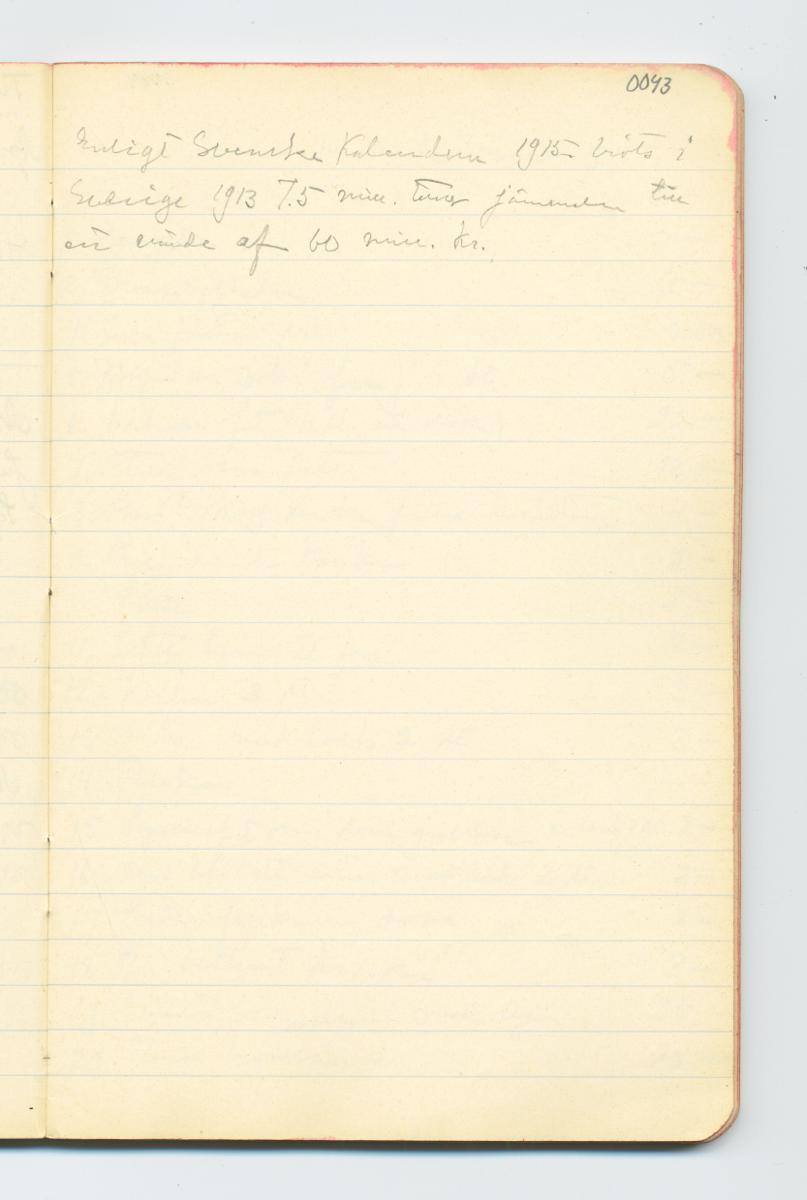 0043
Enligt Svenska Kalendern 1915 bröts i
Sverige 1913 7.5 mill. ton järnmalm till
ett värde af 60 mill. Kr.